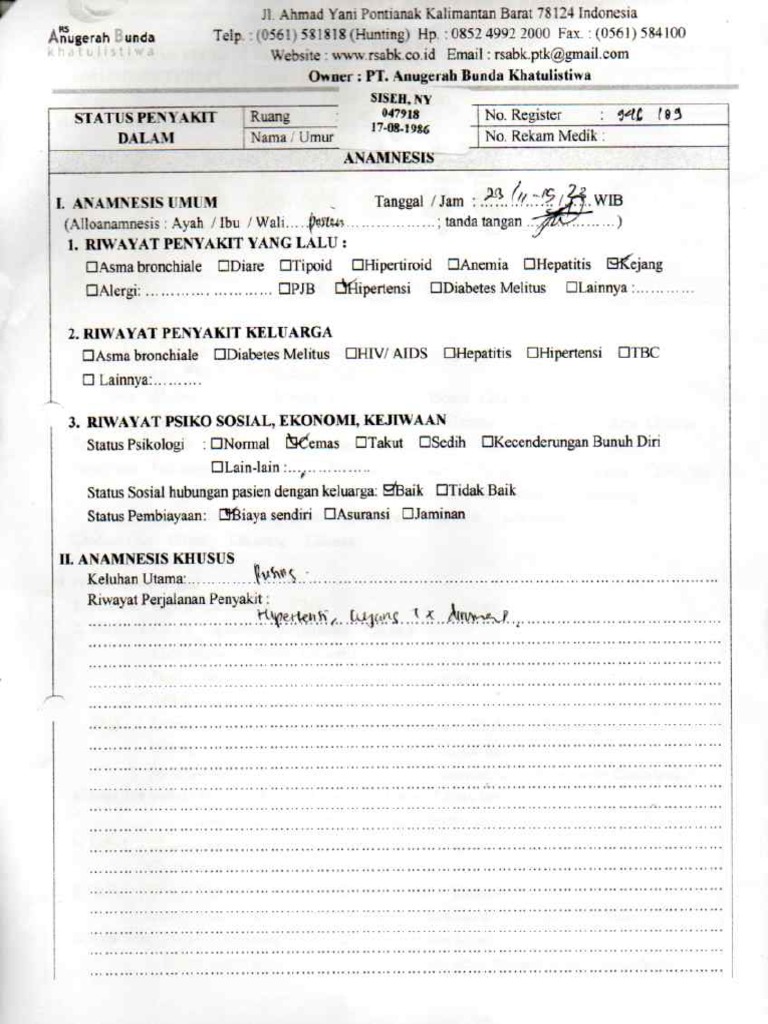 Jl. Ahmad Yani Pontianak Kalimantan Barat 78124 Indonesia
RS Anugerah Bunda khatulistiwa
Telp. : (0561) 581818 (Hunting) Hp. : 0852 4992 2000 Fax. : (0561) 584100
Website : www.rsabk.co.id Email : rsabk.ptk@gmail.com
Owner : PT. Anugerah Bunda Khatulistiwa
STATUS PENYAKIT DALAM
Ruang :
Nama / Umur
SISEH, NY
047918
17-08-1986
No. Register :
No. Rekam Medik :
ANAMNESIS
I. ANAMNESIS UMUM Tanggal / Jam : WIB
(Alloanamnesis : Ayah / Ibu / Wali.... ; tanda tangan ............)
1. RIWAYAT PENYAKIT YANG LALU :
☐Asma bronchiale ☐Diare ☐Tipoid ☐Hipertiroid ☐Anemia ☐Hepatitis ☑Kejang
☐Alergi: ........................ ☐PJB ☑Hipertensi ☐Diabetes Melitus ☐Lainnya :............
2. RIWAYAT PENYAKIT KELUARGA
☐Asma bronchiale ☐Diabetes Melitus ☐HIV/ AIDS ☐Hepatitis ☐Hipertensi ☐TBC
☐ Lainnya:..........
3. RIWAYAT PSIKO SOSIAL, EKONOMI, KEJIWAAN
Status Psikologi : ☐Normal ☑Cemas ☐Takut ☐Sedih ☐Kecenderungan Bunuh Diri
☐Lain-lain :..................
Status Sosial hubungan pasien dengan keluarga: ☑Baik ☐Tidak Baik
Status Pembiayaan: ☑Biaya sendiri ☐Asuransi ☐Jaminan
II. ANAMNESIS KHUSUS
Keluhan Utama: Pusing
Riwayat Perjalanan Penyakit :
Hipertensi, kejang 1x